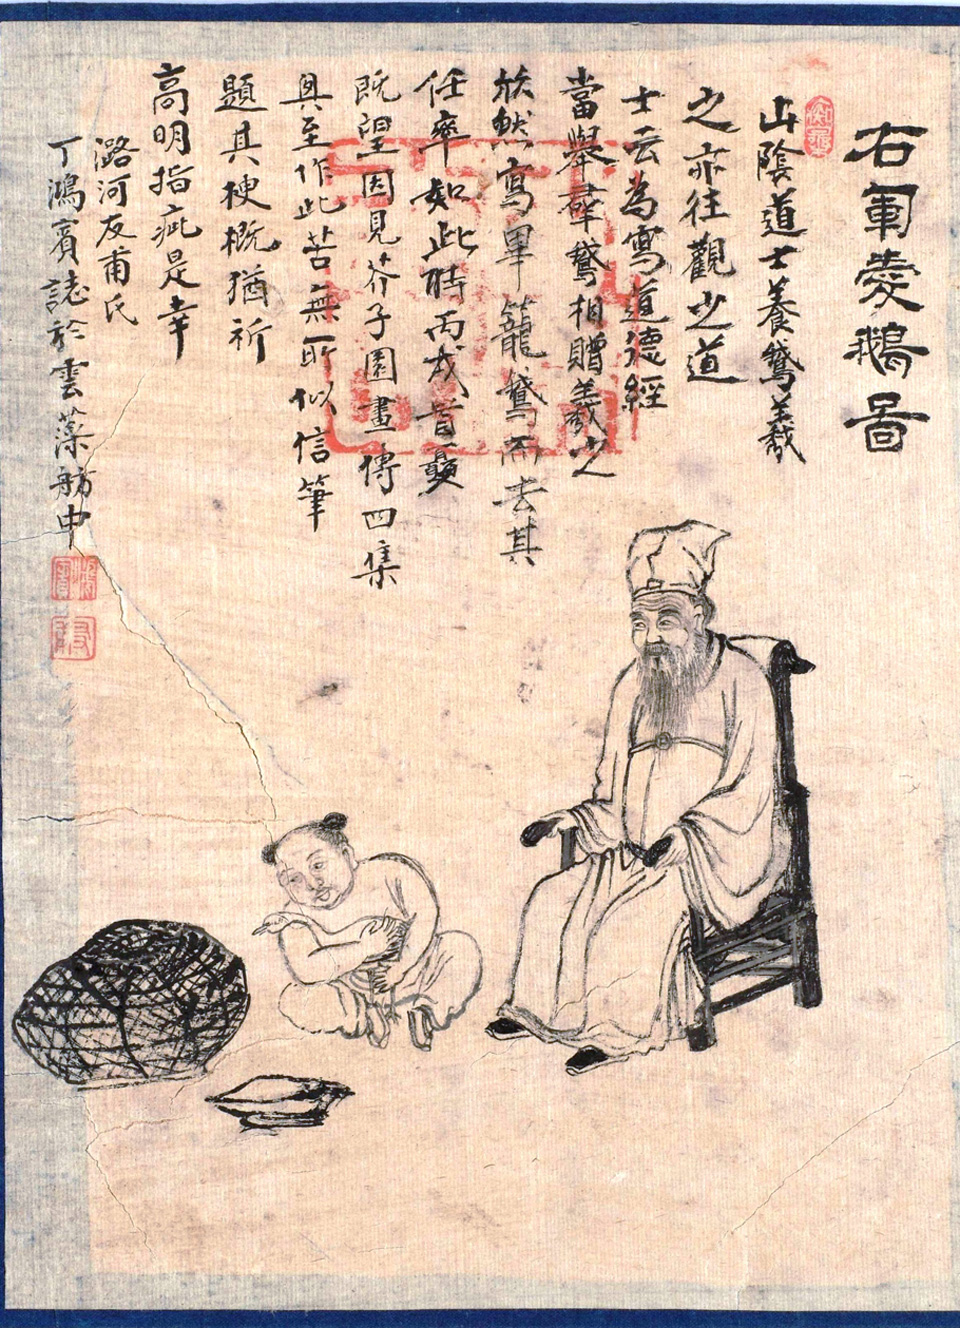 右軍愛鵝圖
山陰道士養鵞羲
之亦往觀之道
士云為寫道德經
當舉羣鵞相贈羲之
欣然寫畢籠鵞而去其
任率如此時丙戌首夏
既望因見芥子園畫傳四集
興至作此苦無所似信筆
題其梗概猶祈
高明指疵是幸
潞河友甫氏
丁鴻賓誌於雲藻舫中
鴻賓